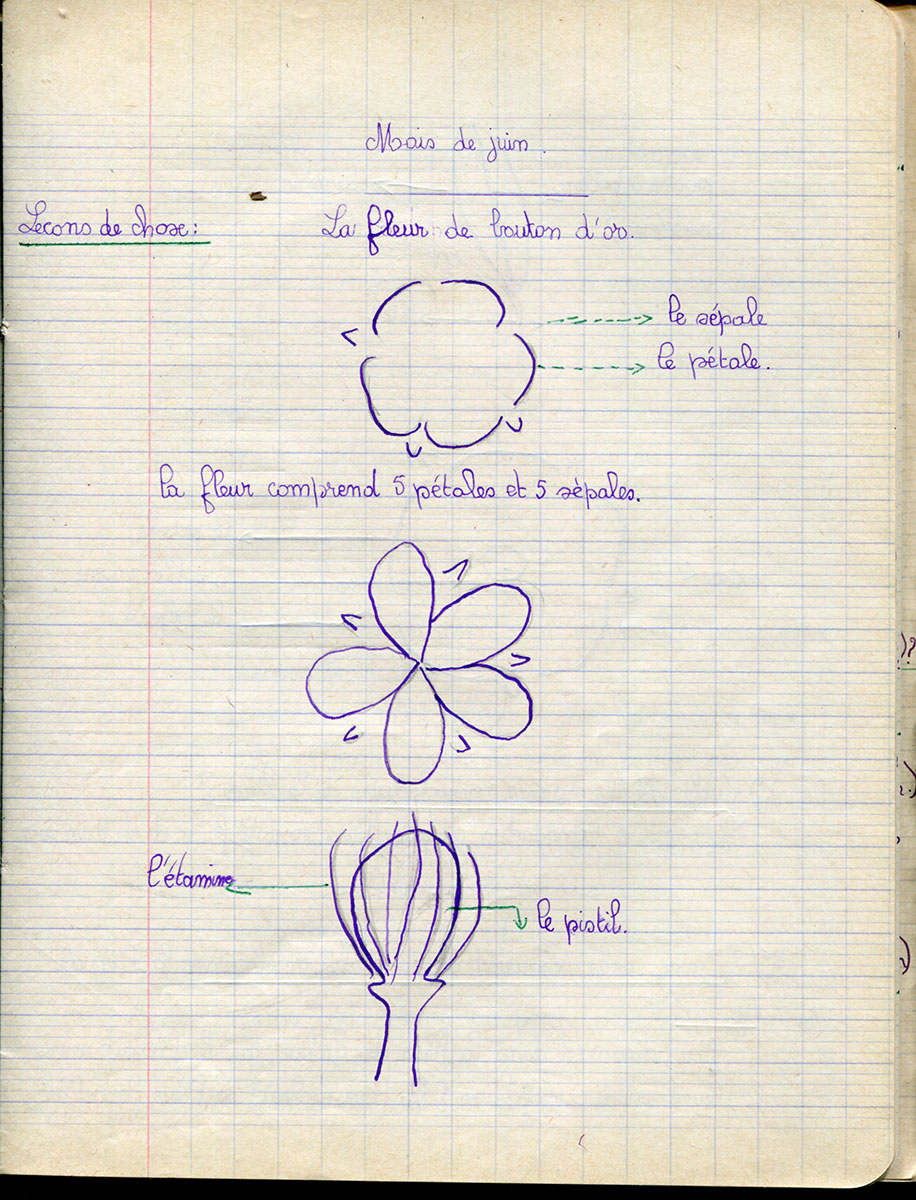 Mois de juin.
Leçons de chose: La fleur de bouton d'or.
le sépale
le pétale.
la fleur comprend 5 pétales et 5 sépales.
l'étamine
le pistil.